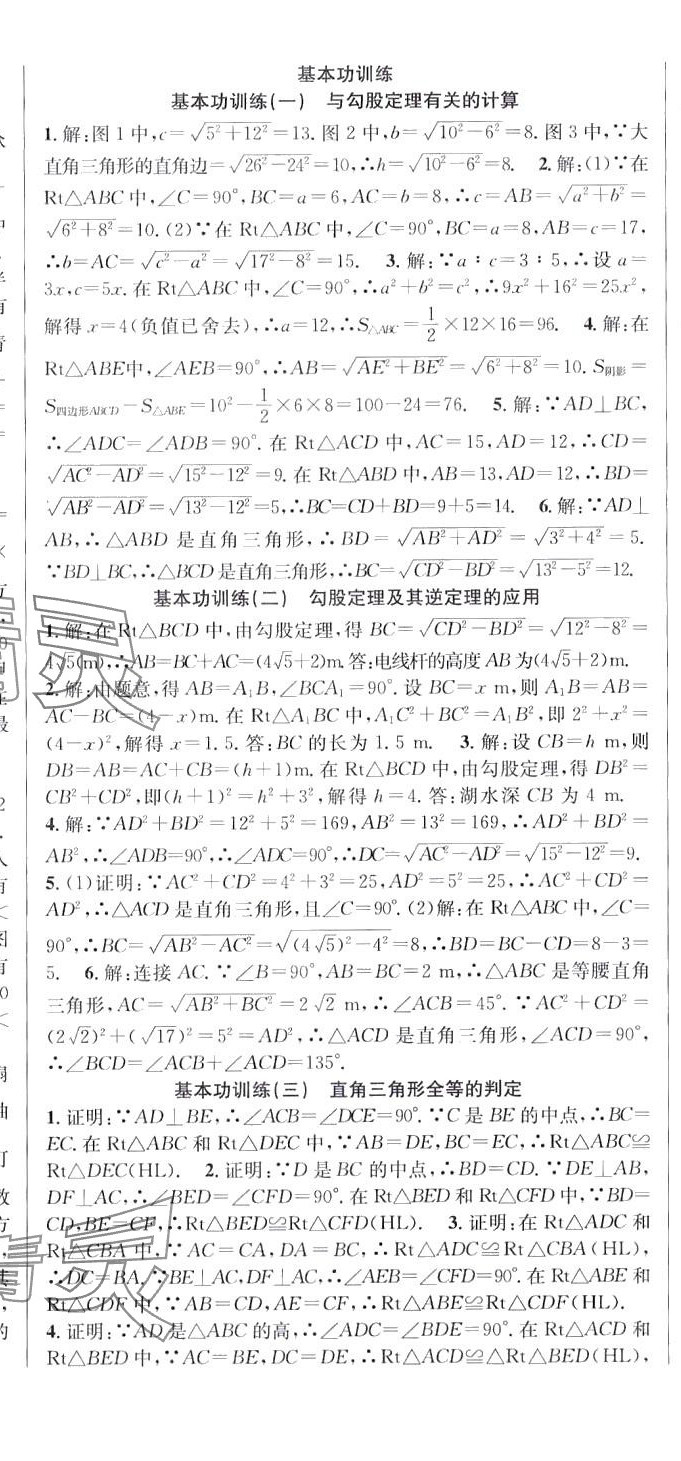 基本功训练
基本功训练(一) 与勾股定理有关的计算
1. 解:图1中,c=√(5²+12²)=13. 图2中,b=√(10²-6²)=8. 图3中,∵大
直角三角形的直角边=√(26²-24²)=10,∴h=√(10²-6²)=8. 2. 解:(1)∵在
Rt△ABC中,∠C=90°,BC=a=6,AC=b=8,∴c=AB=√(a²+b²)=
√(6²+8²)=10. (2)∵在Rt△ABC中,∠C=90°,BC=a=8,AB=c=17,
∴b=AC=√(c²-a²)=√(17²-8²)=15. 3. 解:∵a∶c=3∶5,∴设a=
3x,c=5x. 在Rt△ABC中,∠C=90°,∴a²+b²=c²,∴9x²+16²=25x²,
解得x=4(负值已舍去),∴a=12,∴S△ABC=1/2×12×16=96. 4. 解:在
Rt△ABE中,∠AEB=90°,∴AB=√(AE²+BE²)=√(6²+8²)=10. S阴影=
S四边形ABCD-S△ABE=10²-1/2×6×8=100-24=76. 5. 解:∵AD⊥BC,
∴∠ADC=∠ADB=90°. 在Rt△ACD中,AC=15,AD=12,∴CD=
√(AC²-AD²)=√(15²-12²)=9. 在Rt△ABD中,AB=13,AD=12,∴BD=
√(AB²-AD²)=√(13²-12²)=5,∴BC=CD+BD=9+5=14. 6. 解:∵AD⊥
AB,∴△ABD是直角三角形,∴BD=√(AB²+AD²)=√(3²+4²)=5.
∵BD⊥BC,∴△BCD是直角三角形,∴BC=√(CD²-BD²)=√(13²-5²)=12.
基本功训练(二) 勾股定理及其逆定理的应用
1. 解:在Rt△BCD中,由勾股定理,得BC=√(CD²-BD²)=√(12²-8²)=
4√5(m),∴AB=BC+AC=(4√5+2)m. 答:电线杆的高度AB为(4√5+2)m.
2. 解:由题意,得AB=A₁B,∠BCA₁=90°. 设BC=x m,则A₁B=AB=
AC-BC=(4-x)m. 在Rt△A₁BC中,A₁C²+BC²=A₁B²,即2²+x²=
(4-x)²,解得x=1.5. 答:BC的长为1.5 m. 3. 解:设CB=h m,则
DB=AB=AC+CB=(h+1)m. 在Rt△BCD中,由勾股定理,得DB²=
CB²+CD²,即(h+1)²=h²+3²,解得h=4. 答:湖水深CB为4 m.
4. 解:∵AD²+BD²=12²+5²=169,AB²=13²=169,∴AD²+BD²=
AB²,∴∠ADB=90°,∴∠ADC=90°,∴DC=√(AC²-AD²)=√(15²-12²)=9.
5. (1)证明:∵AC²+CD²=4²+3²=25,AD²=5²=25,∴AC²+CD²=
AD²,∴△ACD是直角三角形,且∠C=90°. (2)解:在Rt△ABC中,∠C=
90°,∴BC=√(AB²-AC²)=√((4√5)²-4²)=8,∴BD=BC-CD=8-3=
5. 6. 解:连接AC. ∵∠B=90°,AB=BC=2 m,∴△ABC是等腰直角
三角形,AC=√(AB²+BC²)=2√2 m,∴∠ACB=45°. ∵AC²+CD²=
(2√2)²+(√17)²=5²=AD²,∴△ACD是直角三角形,∠ACD=90°,
∴∠BCD=∠ACB+∠ACD=135°.
基本功训练(三) 直角三角形全等的判定
1. 证明:∵AD⊥BE,∴∠ACB=∠DCE=90°. ∵C是BE的中点,∴BC=
EC. 在Rt△ABC和Rt△DEC中,∵AB=DE,BC=EC,∴Rt△ABC≌
Rt△DEC(HL). 2. 证明:∵D是BC的中点,∴BD=CD. ∵DE⊥AB,
DF⊥AC,∴∠BED=∠CFD=90°. 在Rt△BED和Rt△CFD中,∵BD=
CD,BE=CF,∴Rt△BED≌Rt△CFD(HL). 3. 证明:在Rt△ADC和
Rt△CBA中,∵AC=CA,DA=BC,∴Rt△ADC≌Rt△CBA(HL),
∴DC=BA. ∵BE⊥AC,DF⊥AC,∴∠AEB=∠CFD=90°. 在Rt△ABE和
Rt△CDF中,∵AB=CD,AE=CF,∴Rt△ABE≌Rt△CDF(HL).
4. 证明:∵AD是△ABC的高,∴∠ADC=∠BDE=90°. 在Rt△ACD和
Rt△BED中,∵AC=BE,DC=DE,∴Rt△ACD≌Rt△BED(HL),